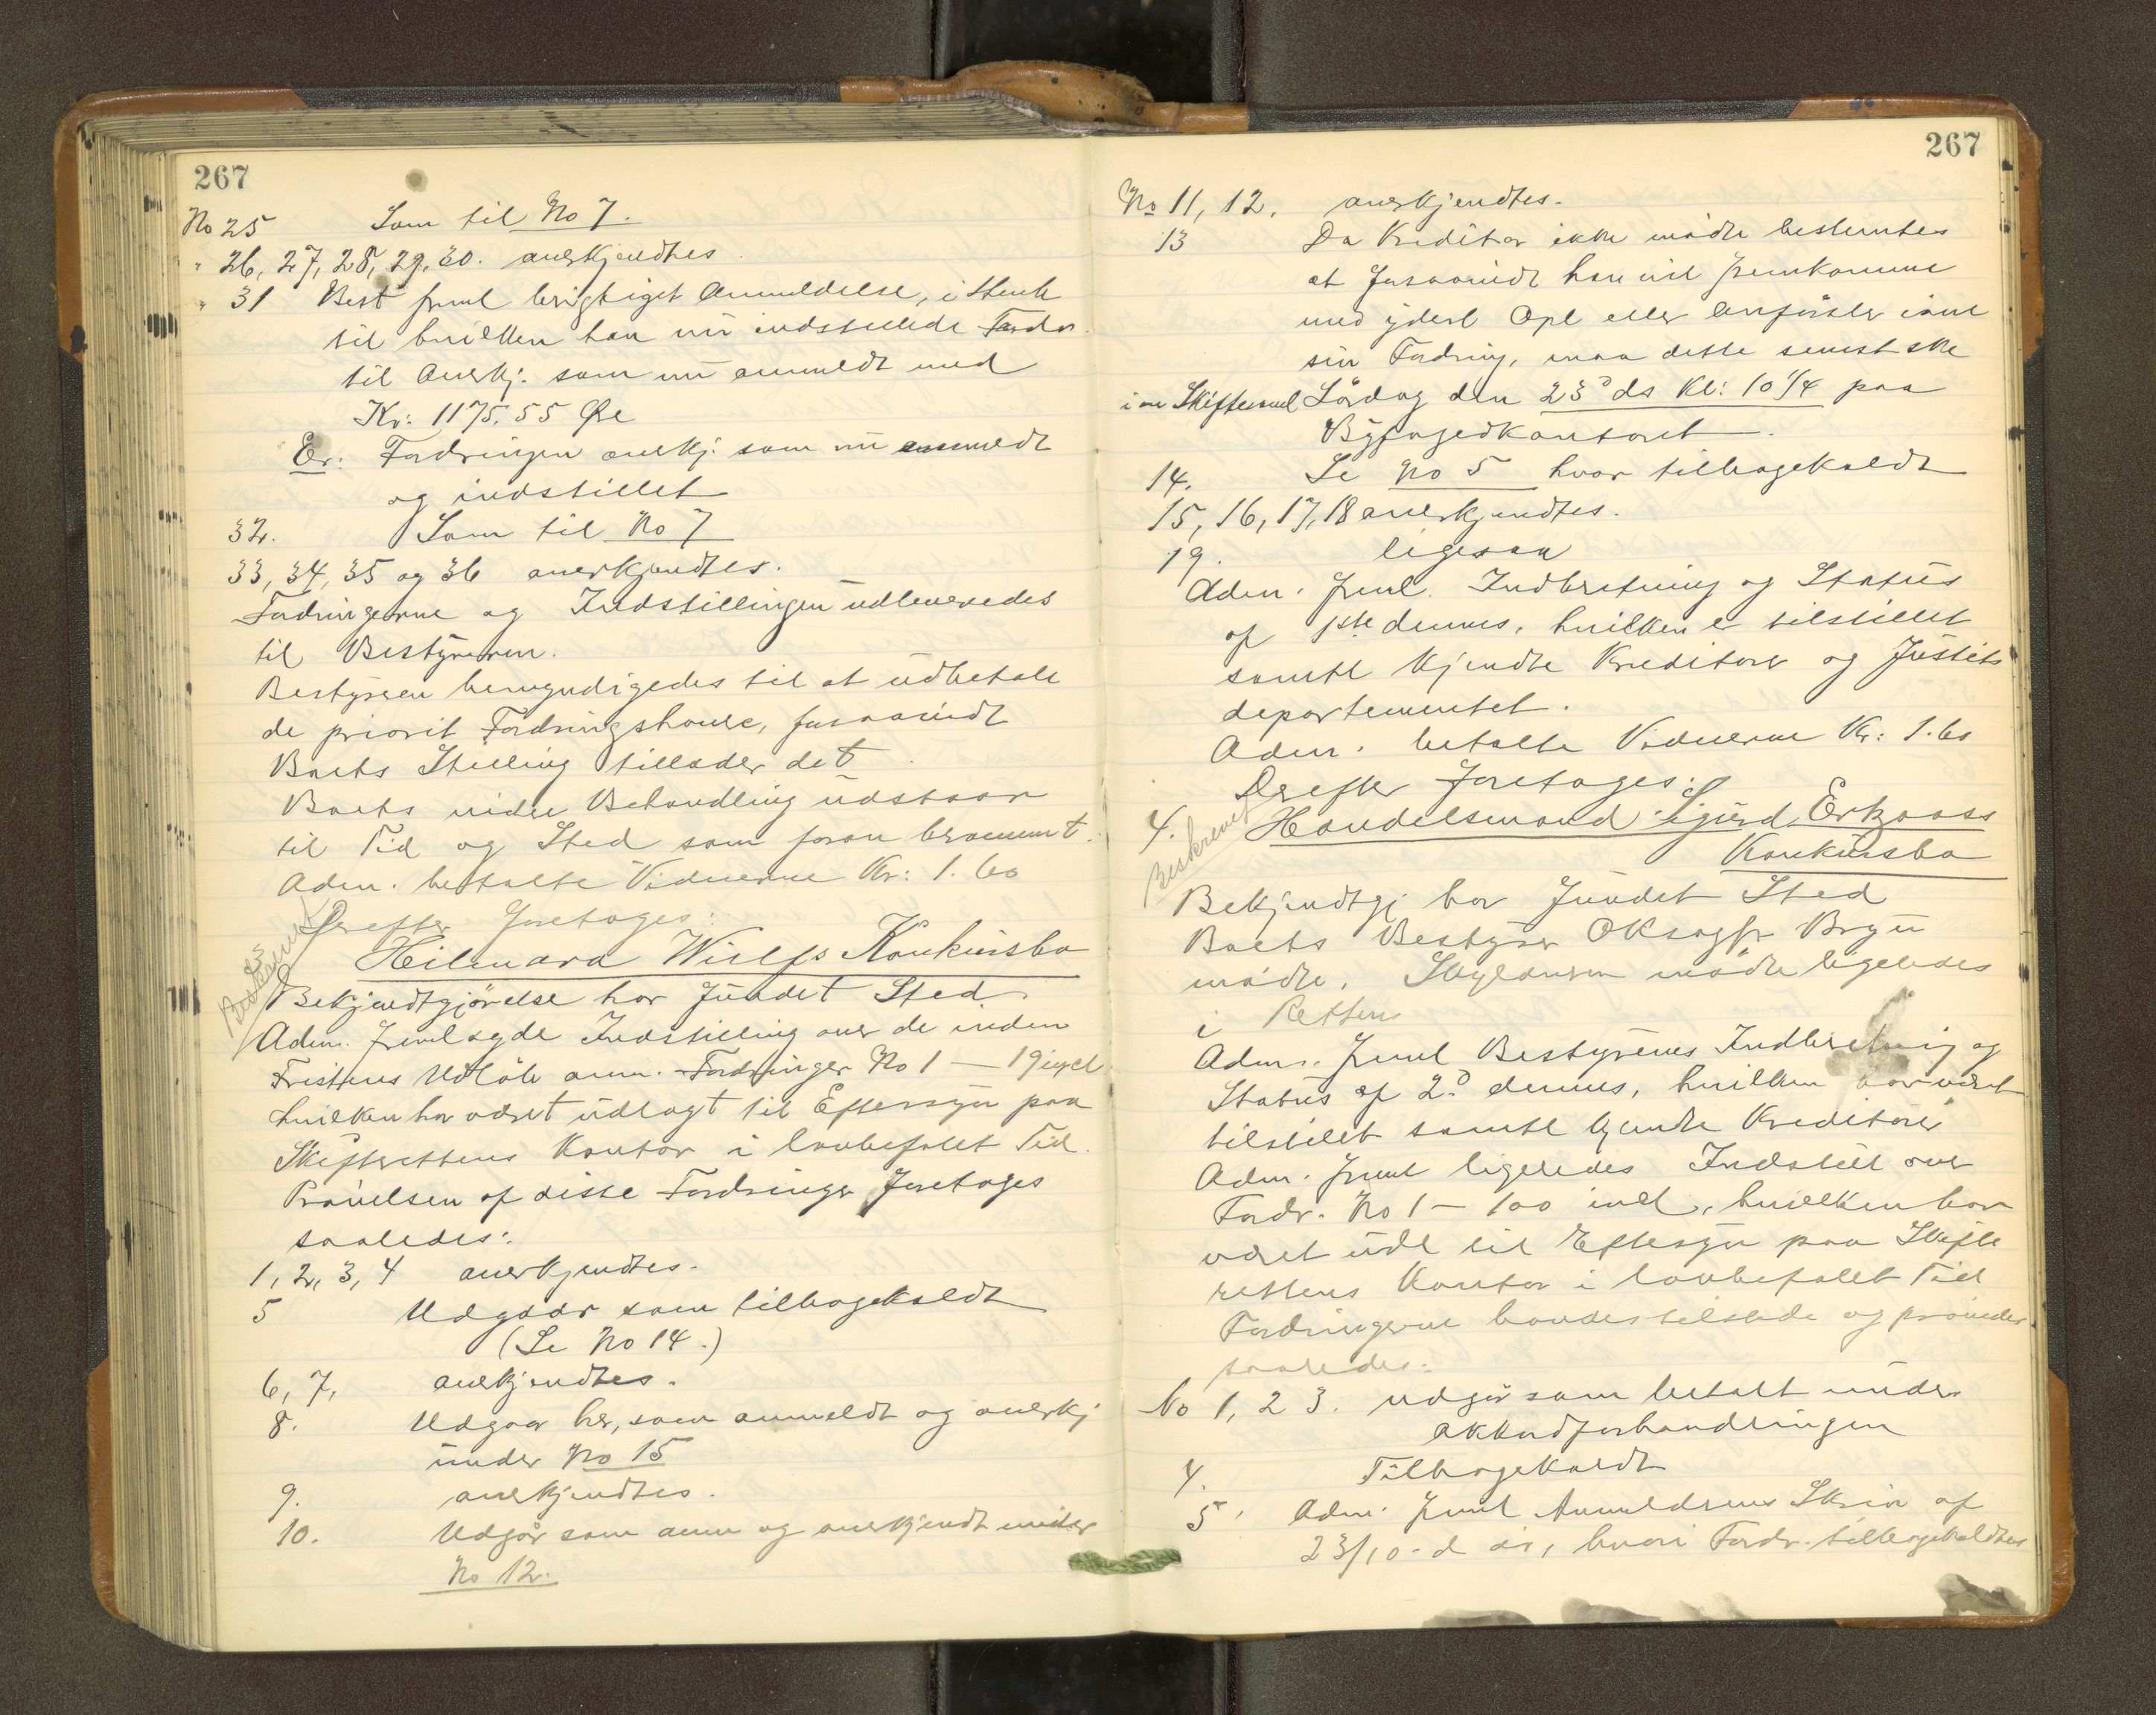 267
No 25 Som til No 7.
" 26, 27, 28, 29, 30. anerkjendtes
" 31 Best freml berigtiget Anmeldelse, i Henh
til hvilken han nu indstillede Fordr.
til Anerkj. som nu anmeldt med
Kr: 1175.55 Øre
Er: Fordringen anerkj. som nu anmeldt
og indstillet
32. Som til No 7
33, 34, 35 og 36 anerkjendtes.
Fordringerne og Indstillingen udleveredes
til Bestyreren.
Bestyreren bemyndigedes til at udbetale
de priorit Fordringshavere, forsaavidt
Boets Stilling tillader det.
Boets videre Behandling udstaar
til Tid og Sted som foran berammet.
Adm. betalte Vidnerne Kr: 1.60
Derefter foretages:
Beskrevet
3 Hilmara Wulfs Konkursbo
Bekjendtgjørelse har fundet Sted.
Adm. fremlagde Indstilling over de inden
Fristens Udløb anm. Fordringer No 1 – 19 incl
hvilken har været udlagt til Eftersyn paa
Skifterettens Kontor i lovbefalet Tid.
Prøvelsen af disse Fordringer foretages
saaledes:
1, 2, 3, 4 anerkjendtes.
5 Udgaar som tilbagekaldt
(Se No 14.)
6, 7, anerkjendtes.
8. Udgaar her, som anmeldt og anerkj
under No 15
9. anerkjendtes.
10. Udgår som anm og anerkjendt under
No 12.
267
No 11, 12. anerkjendtes.
13 Da Kreditor ikke mødte bestemtes
at forsaavidt han vil fremkomme
med yderl Opl eller Anførsler isml
sin Fordring, maa dette senest ske
Lördag den 23d ds Kl: 10 1/4 paa
Byfogedkontoret.
14. Se No 5 hvor tilbagekaldt
15, 16, 17, 18 anerkjendtes.
19. ligesaa
Adm. freml. Indberetning og Status
af 1ste dennes, hvilken er tilstillet
samtl kjendte Kreditorer og Justits
departementet.
Adm. betalte Vidnerne Kr: 1.60
Derefter foretages:
Beskrevet
4. Handelsmand Sigurd Erkaass
Konkursbo
Bekjendtgj har fundet Sted
Boets Bestyrer OKsagfr Bryn
mødte. Skyldneren mødte ligeledes
i Retten
Adm. freml Bestyrerens Indberetning og
Status af 2d dennes, hvilken har været
tilstillet samtl kjendte Kreditorer
Adm. freml ligeledes Indstill over
Fordr. No 1 – 100 incl, hvilken har
været udl til Eftersyn paa Skifte
rettens Kontor i lovbefalet Tid
Fordringerne havdes tilstede og prøvedes
saaledes:
No 1, 2 3. udgår som betalt under
akkordforhandlingen
4. Tilbagekaldt
5. Adm. freml Anmelderens Skriv af
23/10. d år, hvori Fordr. tilbagekaldtes